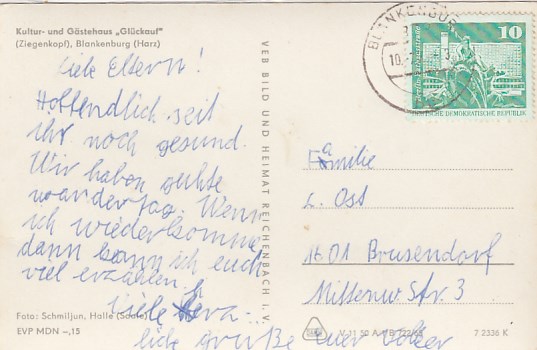 Kultur- und Gästehaus „Glückauf"
(Ziegenkopf), Blankenburg (Harz)
Liebe Eltern!
Hoffendlich seit
ihr noch gesund.
Wir haben
wandertag. Wenn
ich wiederkomme
dann kann ich euch
viel erzählen.
Viele
liebe grüße euer Volker
Foto: Schmiljun, Halle (Saale)
EVP MDN –,15
VEB BILD UND HEIMAT REICHENBACH I. V.
BLANKENBURG
10
DEUTSCHE DEMOKRATISCHE REPUBLIK
Familie
L. Ost
1601 Brusendorf
Mittenw Str. 3
V 11 50 A
7 2336 K